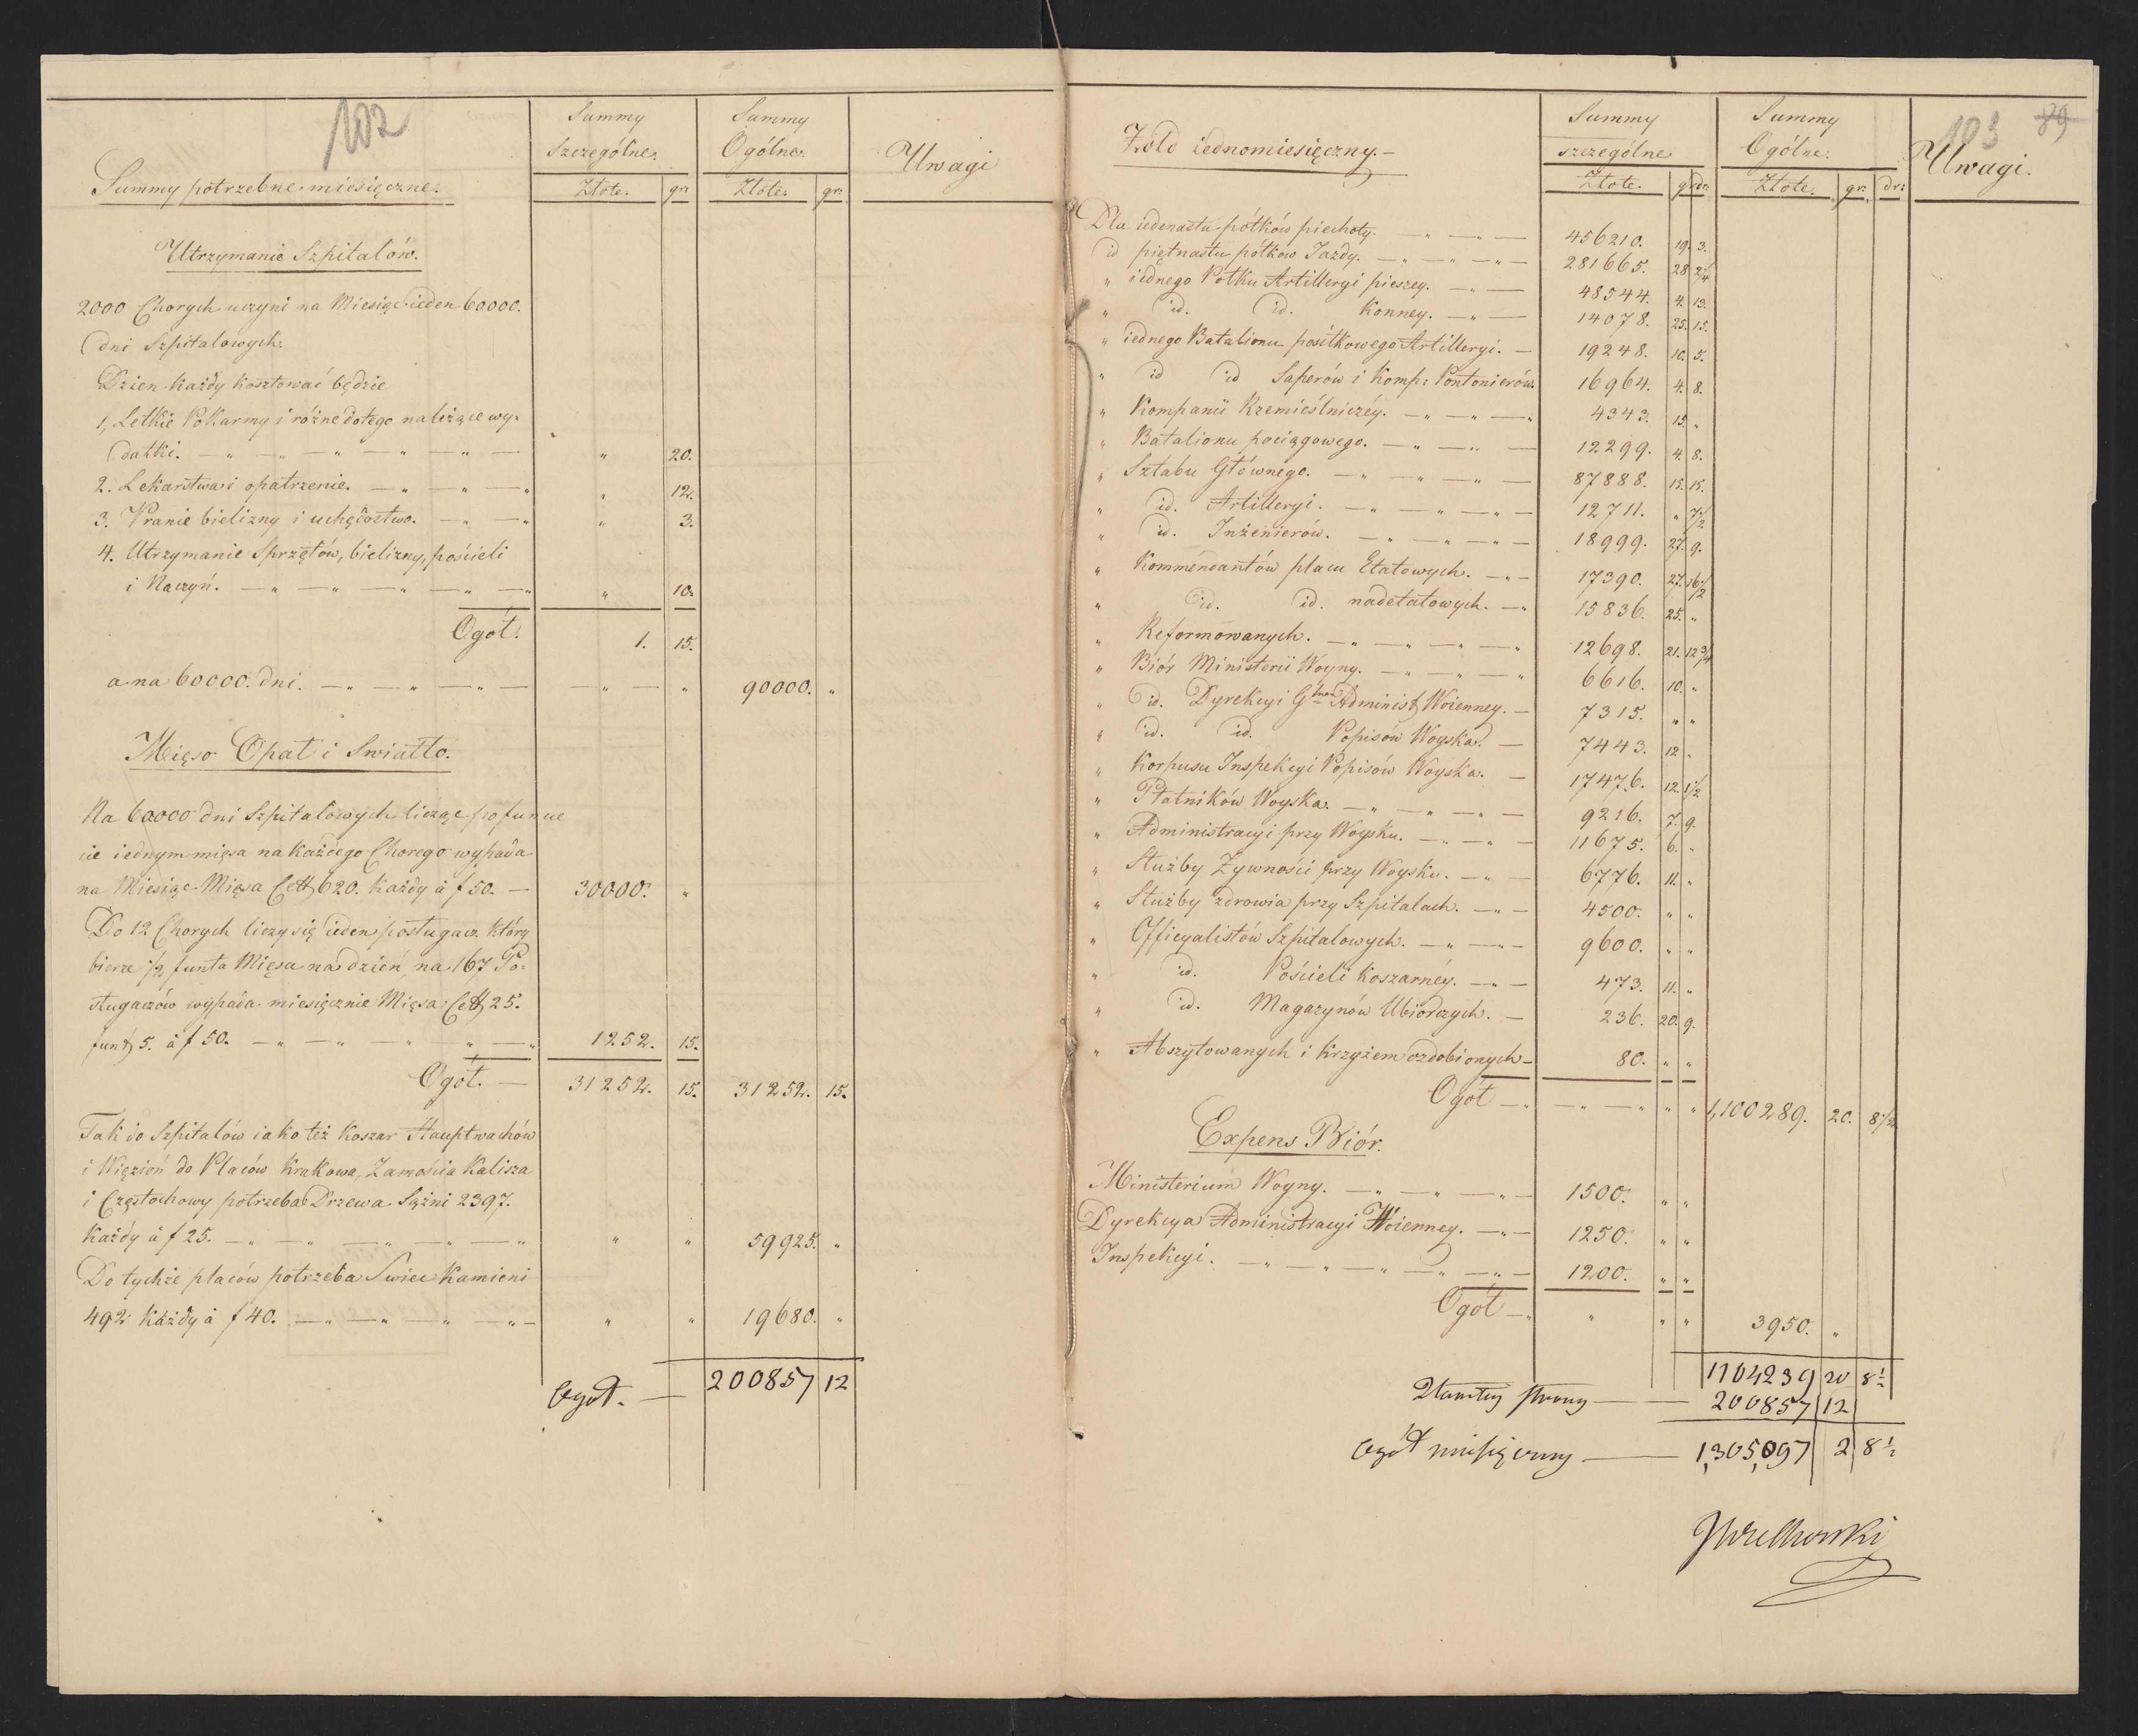 102
Summy potrzebne miesięczne.
Summy Szczególne.
Złote. gr:
Summy Ogólne.
Złote. gr:
Uwagi
Utrzymanie Szpitalów.
2000 Chorych uczyni na Miesiąc ieden 60000.
dni Szpitalowych.
Dzien każdy kosztować będzie
1, Letkie Pokarmy i różne dotego należące wy-
datki. — " — " — " — " — " — " 20.
2. Lekarstwa i opatrzenie. — " — " — " " 12.
3. Pranie bielizny i uchędostwo. — " — " " 3.
4. Utrzymanie Sprzętów, bielizny, pościeli
i Naczyń. — " — " — " — " — " " 10.
Ogół. 1. 15.
a na 60000. dni. — " — " — " — — " — " 90000. "
Mięso Opał i Swiatło.
Na 60000 dni Szpitalowych licząc po fun
cie iednym mięsa na każdego Chorego wypada
na Miesiąc Mięsa Cett 620. każdy à f 50. — 30000. "
Do 12 Chorych liczy się ieden posługacz który
bierze 1/2 funta Mięsa na dzień, na 167 Po-
sługaczów wypada miesięcznie Mięsa Cett 25.
funt 5. à f 50. — " — " — " — " — " 1252. 15.
Ogół. — 31252. 15. 31252. 15.
Tak do Szpitalów iako też Koszar Hauptwachów
i Więzień do Placów Krakowa, Zamościa Kalisza
i Częstochowy potrzeba Drzewa Sążni 2397.
Każdy à f 25. — " — " — " — " — " " " 59925. "
Do tychże placów potrzeba Swiec Kamieni
492 Każdy à f 40. — " — " — " — " — " " 19680. "
Ogół. — 200857 12
103 89
Żołd iednomiesięczny. —
Summy szczególne
Złote. gr dr:
Summy Ogólne.
Złote. gr: dr:
Uwagi.
Dla iedenastu półków piechoty. — " — " — 456210. 19. 3.
id piętnastu półków Jazdy. — " — " — " — 281665. 28 2/4
" iednego Półku Artilleryi pieszey. — " — 48544. 4. 13.
" id. id. Konney. — " — 14078. 25. 15.
" iednego Batalionu posiłkowego Artilleryi. — 19248. 10. 5.
" id id Saperów i Komp: Pontonierów. 16964. 4. 8.
" Kompanii Rzemieślniczéy. — " — " — " 4343. 15. "
" Batalionu pociągowego. — " — " — 12299. 4. 8.
" Sztabu Głównego. — " — " — " — 87888. 15. 15.
" id. Artilleryi. — " — " — " — 12711. " 7 1/2
" id. Inżenierów. — " — " — " — 18999. 27. 9.
" Kommendantów placu Etatowych. — " — 17390. 27. 16 1/2
" id. id. nadetatowych. — " 15836. 25. "
" Reformowanych. — " — " — " — " 12698. 21. 12 3/4
" Biór Ministerii Woyny. — " — " — " 6616. 10. "
" id. Dyrekcyi Administ Woienney. — 7315. " "
" id. id. Popisów Woyska. — 7443. 12 "
" Korpusu Inspekcyi Popisów Woyska. — 17476. 12. 1/2
" Płatników Woyska. — " — " — " — 9216. 7. 9.
" Administracyi przy Woysku. — " — " — 11675. 6. "
" Służby Zywności przy Woysku. — " — 6776. 11. "
" Służby zdrowia przy Szpitalach. — " — 4500. " "
" Officyalistów Szpitalowych. — " — " — 9600. " "
" id. Pościeli Koszarnéy. — " — 473. 11. "
" id. Magazynów Ubiorczych. — 236. 20. 9.
" Abszytowanych i Krzyżem ozdobionych — 80. " "
Ogół — " — " — " " " 1,100289. 20. 8 1/2
Expens Biór.
Ministerium Woyny. — " — " — " — 1500. " "
Dyrekcya Administracyi Woienney. — " — 1250. " "
Inspekcyi. — " — " — " — " — " — 1200. " "
Ogół — " " " " 3950. "
1104239 20 8 1/2
Ztamtey strony — 200857 12
Ogół miesięczny — 1,305,097 2 8 1/2